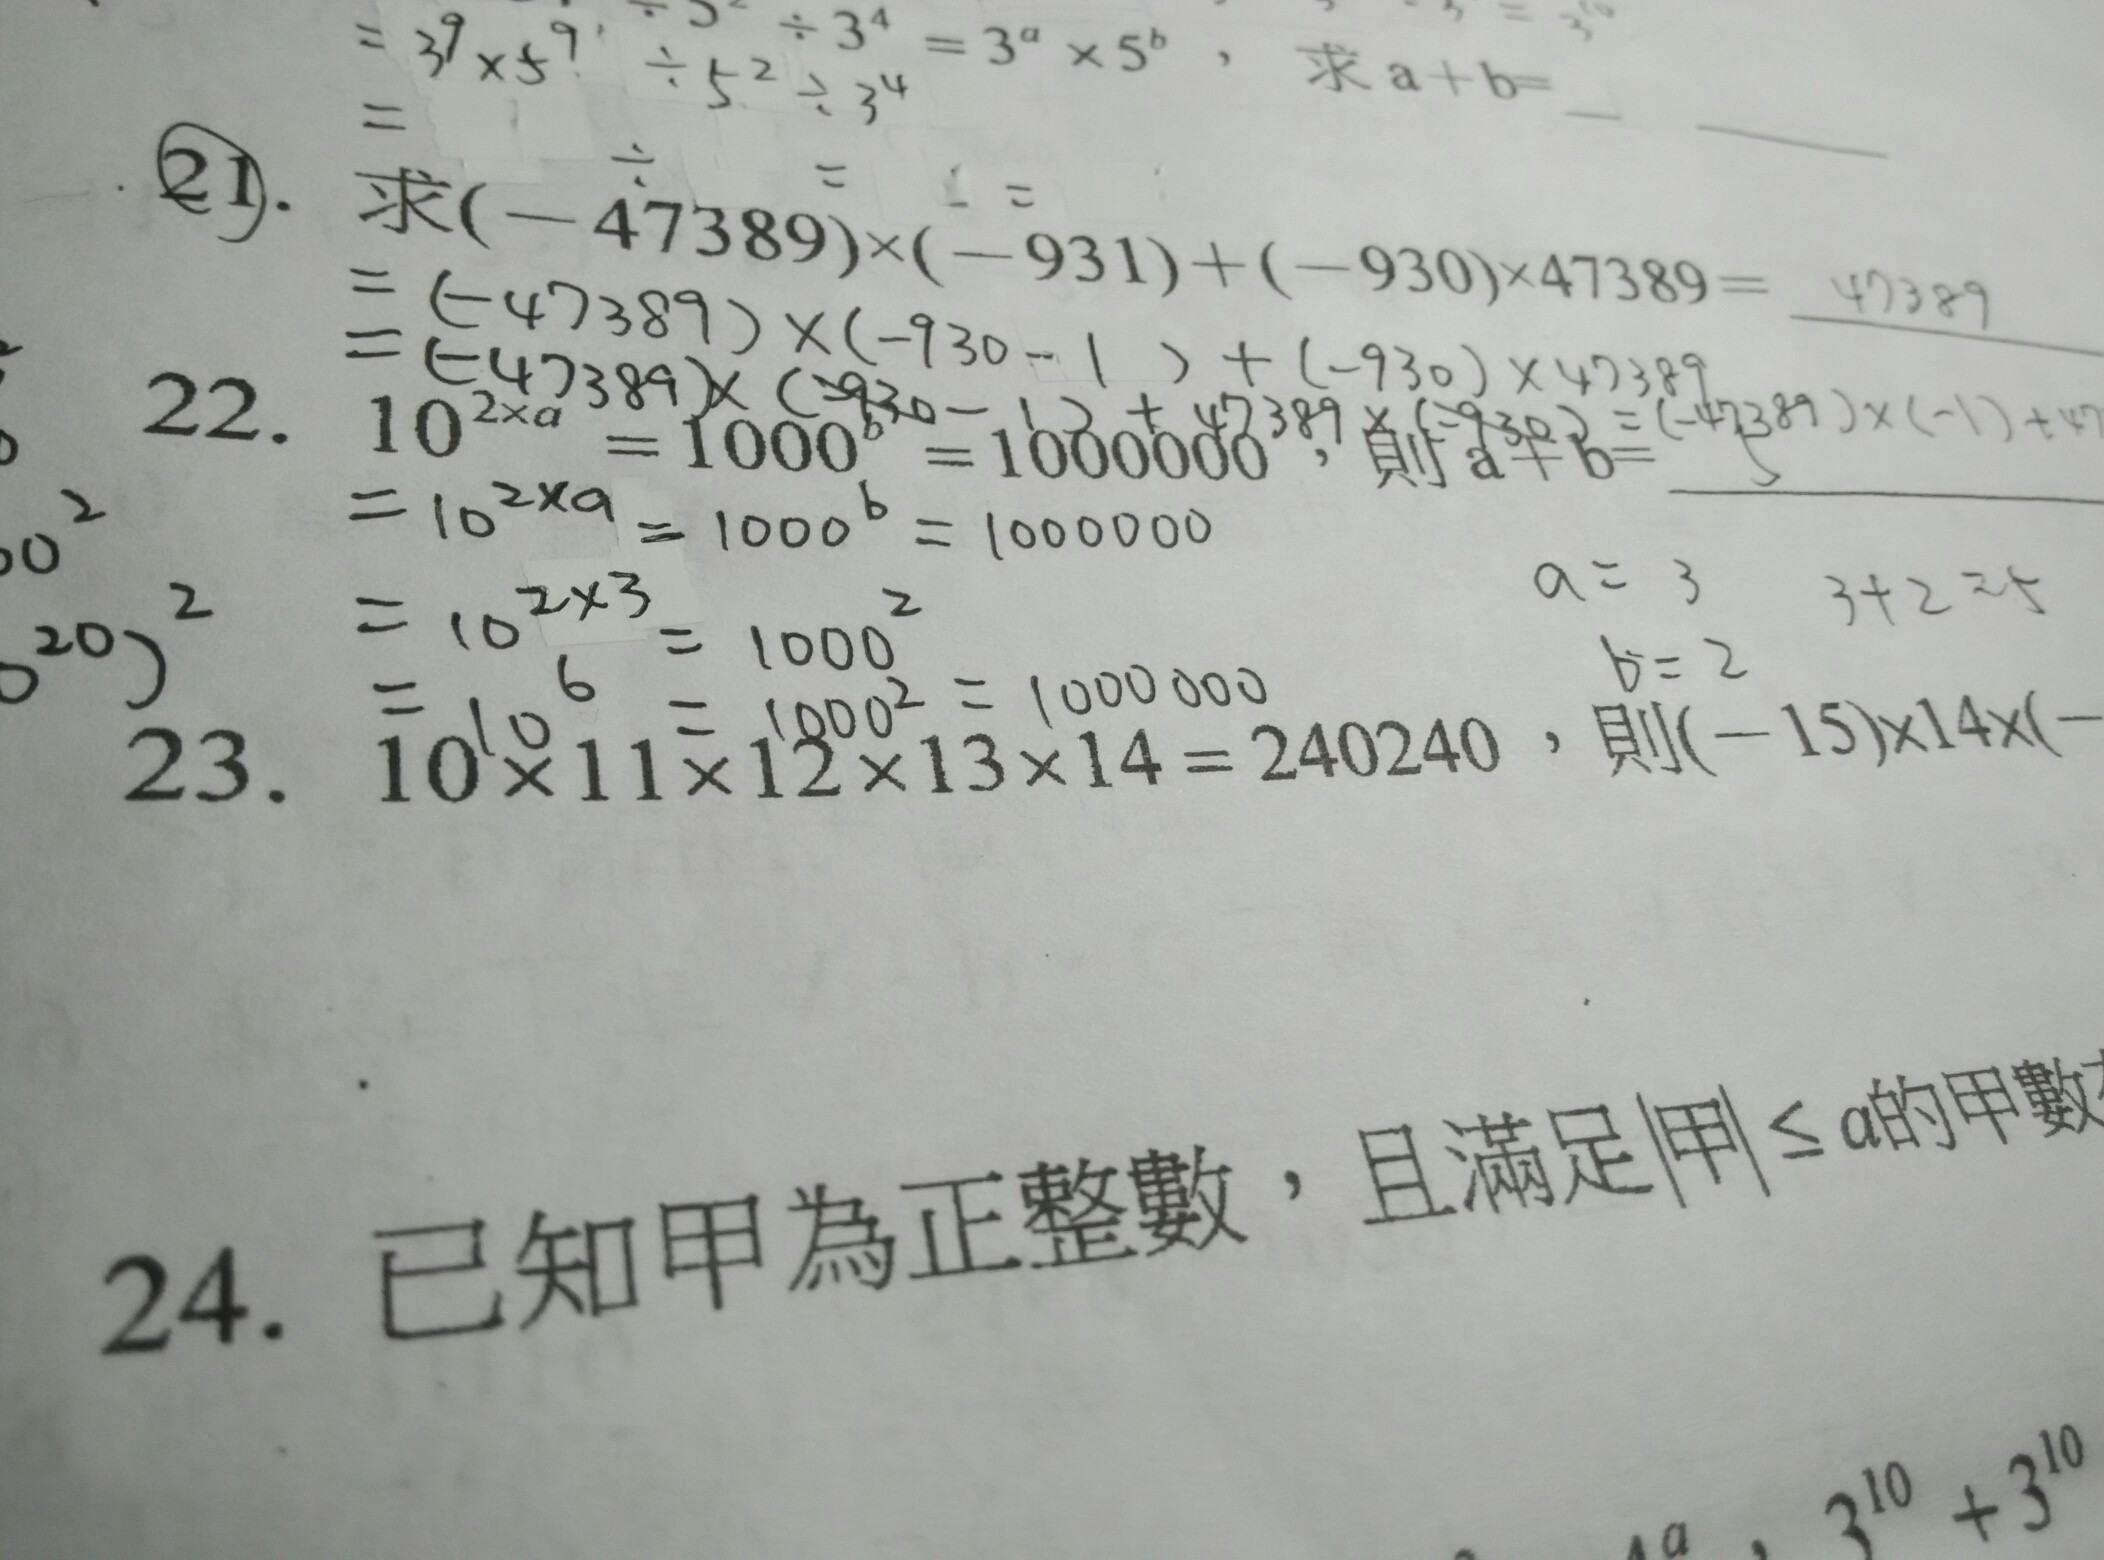 ÷3⁴ = 3ᵃ × 5ᵇ , 求 a+b=
= 3⁹ × 5⁹ ÷ 5² ÷ 3⁴
=
÷ = =
21. 求(－47389)×(－931)＋(－930)×47389= 47389
= (-47389) × (-930 - 1 ) + (-930) × 47389
= (-47389) × (-930 - 1) + 47389 × (-930) = (-47389) × (-1) + 47
22. 10²ˣᵃ = 1000ᵇ = 1000000 , 則 a+b= 5
= 10²ˣᵃ = 1000ᵇ = 1000000
= 10²ˣ³ = 1000²
a = 3 3+2=5
b = 2
= 10⁶ = 1000² = 1000000
00²
0²⁰)²
23. 10×11×12×13×14=240240 , 則(－15)×14×(－
24. 已知甲為正整數，且滿足|甲| ≤ a的甲數
ᵃ , 3¹⁰ + 3¹⁰